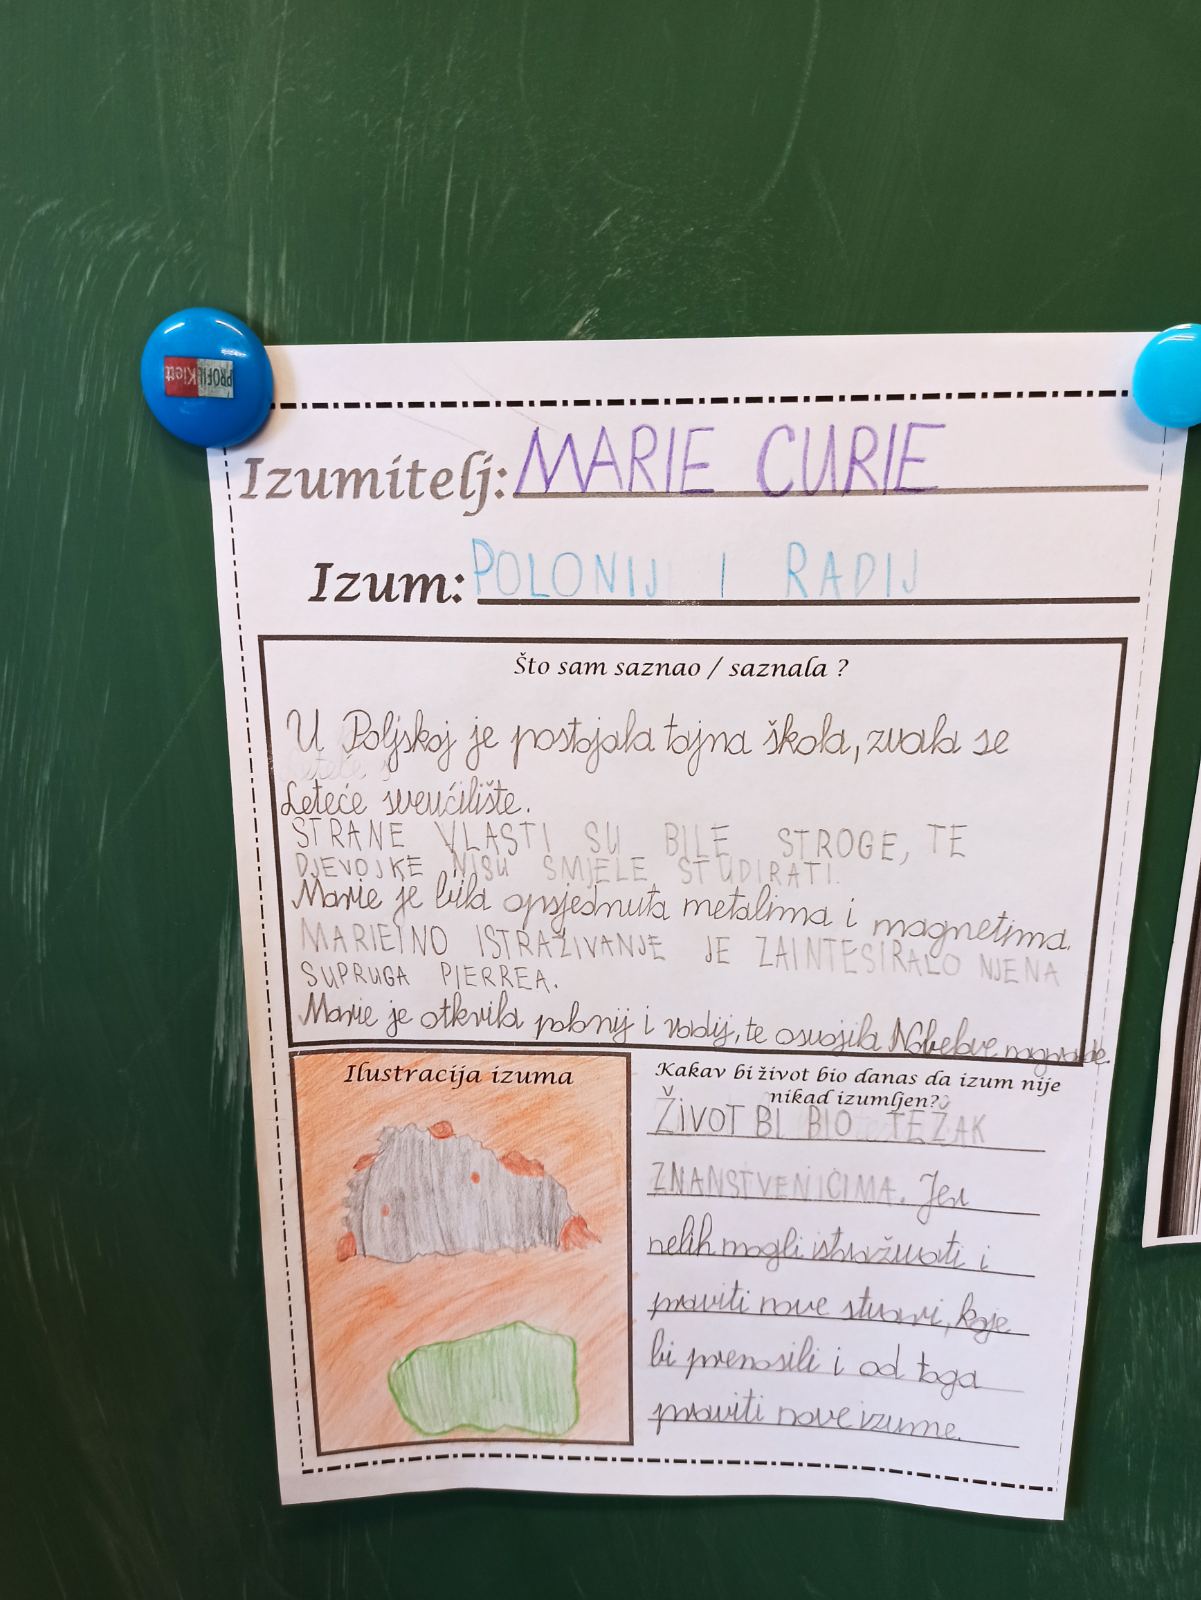 PROFIL Klett
Izumitelj: MARIE CURIE
Izum: POLONIJ I RADIJ
Što sam saznao / saznala ?
U Poljskoj je postojala tajna škola, zvala se
Leteće sveučilište.
STRANE VLASTI SU BILE STROGE, TE
DJEVOJKE NISU SMJELE STUDIRATI.
Marie je bila opsjednuta metalima i magnetima.
MARIEINO ISTRAŽIVANJE JE ZAINTESIRALO NJENA
SUPRUGA PIERREA.
Marie je otkrila polonij i radij, te osvojila Nobelove nagrade.
Ilustracija izuma
Kakav bi život bio danas da izum nije
nikad izumljen?
ŽIVOT BI BIO TEŽAK
ZNANSTVENICIMA. Jer
nebih mogli istraživati i
praviti nove stvari, koje
bi prenosili i od toga
praviti nove izume.